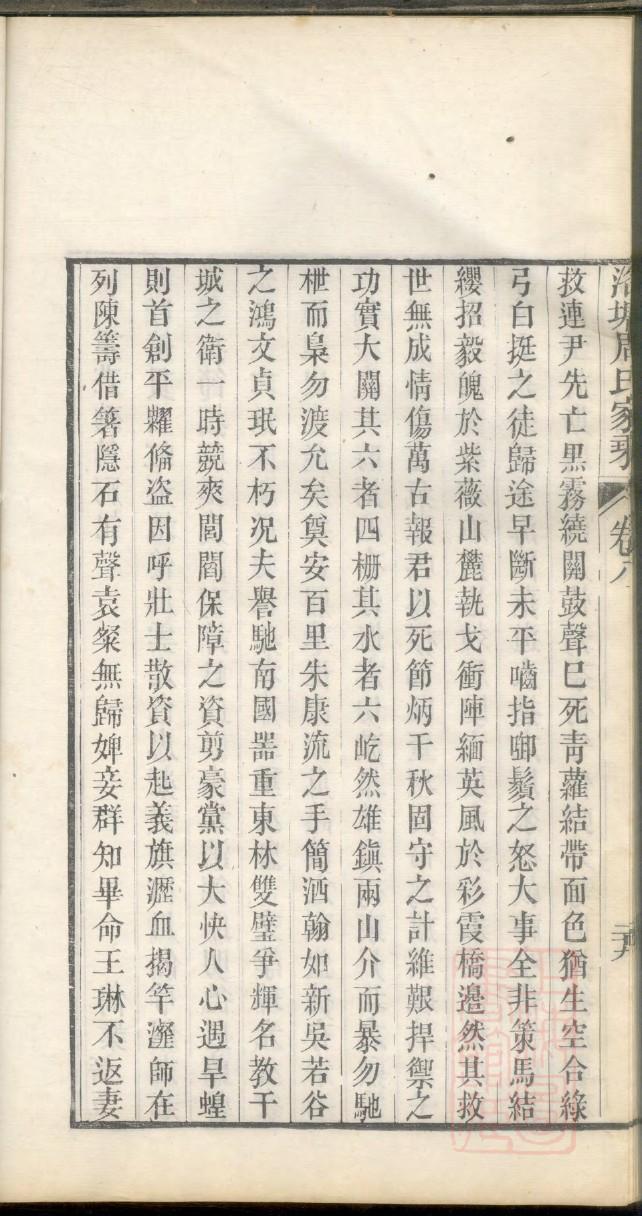 洛塘周氏家乘 卷八 二六
救連尹先亡黑霧繞關鼓聲巳死靑蘿結帶面色猶生空合綠
弓白挺之徒歸途早斷未平嚙指啣鬚之怒大事全非策馬結
纓招毅魄於紫薇山麓執戈衝陣緬英風於彩霞橋邊然其救
世無成情傷萬古報君以死節炳千秋固守之計維艱捍禦之
功實大關其六者四栅其水者六屹然雄鎭兩山介而暴勿馳
枻而梟勿渡允矣奠安百里朱康流之手簡酒翰如新吳若谷
之鴻文貞珉不朽况夫譽馳南國噐重東林雙璧爭輝名教干
城之衛一時競爽閭閻保障之資剪豪黨以大快人心遇旱蝗
則首創平糶脩盗因呼壯士散資以起義旗瀝血揭竿瀝師在
列陳籌借箸隱石有聲袁粲無歸婢妾群知畢命王琳不返妻